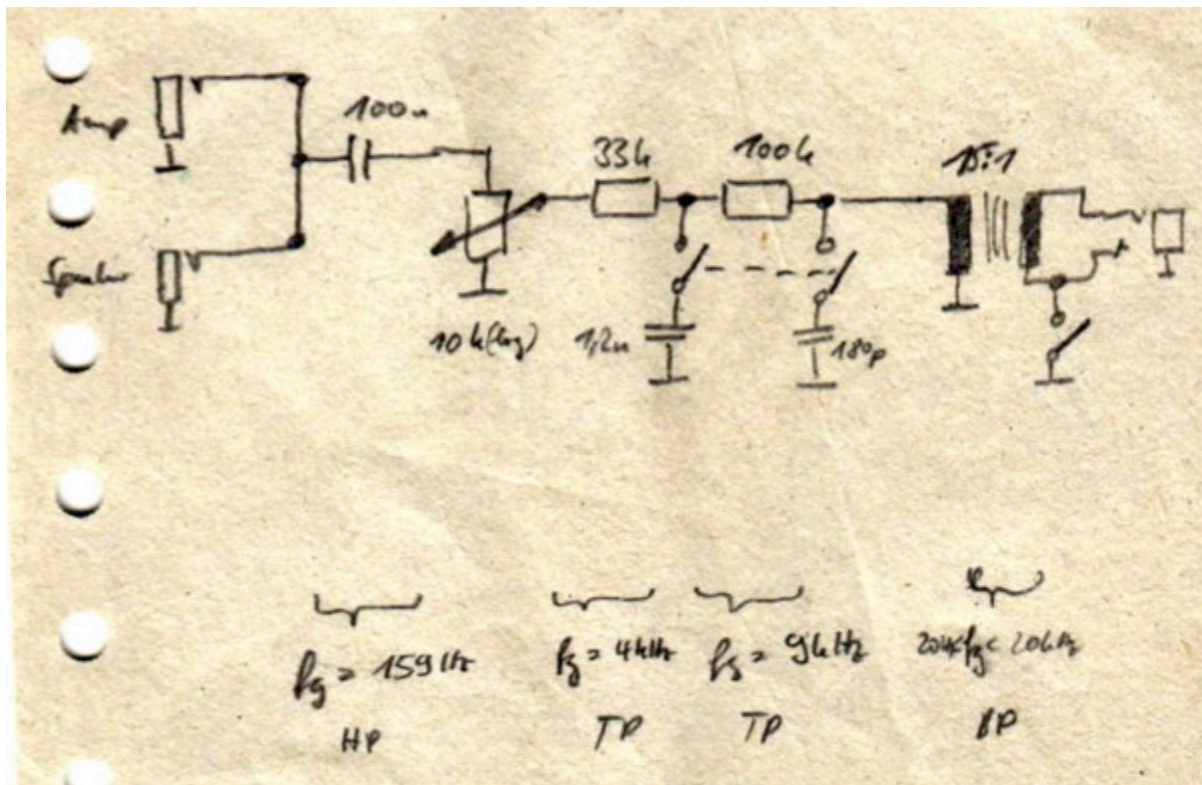 Amp
Speaker
100n
33k
100k
15:1
10k(log)
1,2n
180p
fg = 159Hz
HP
fg = 4kHz
TP
fg = 9kHz
TP
20Hz<fg<20kHz
BP